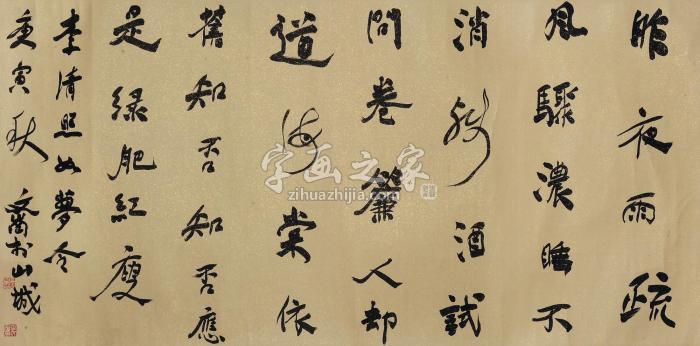 昨夜雨疏
風驟濃睡不
消殘酒試
問卷簾人却
道海棠依
舊知否知否應
是緑肥紅瘦
李清照如夢令
庚寅秋 文於山城
字画之家
zihuazhijia.com